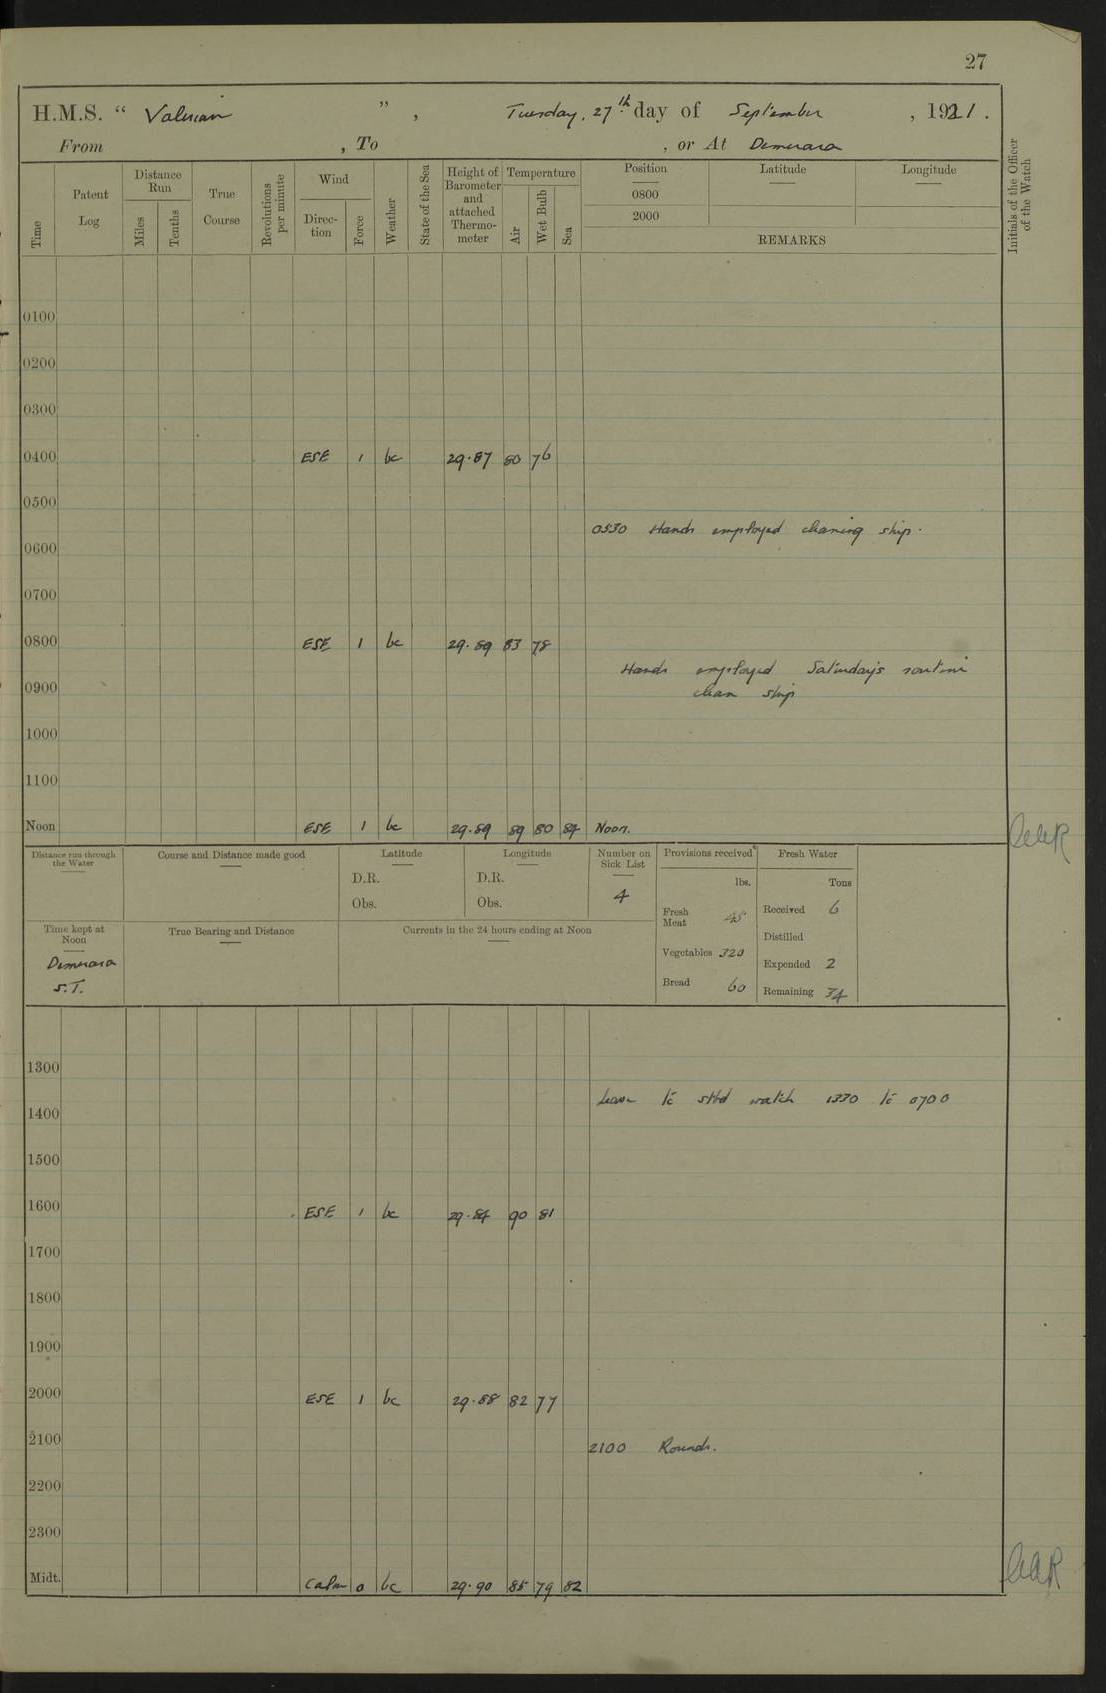 27
H.M.S. “ Valerian ”, Tuesday, 27th day of September, 1921.
From , To , or At Demerara
Time
Patent Log
Distance Run
Miles
Tenths
True Course
Revolutions per minute
Wind
Direc-tion
Force
Weather
State of the Sea
Height of Barometer and attached Thermo-meter
Temperature
Air
Wet Bulb
Sea
Position
0800
2000
Latitude
Longitude
REMARKS
Initials of the Officer of the Watch
0100
0200
0300
0400 ESE 1 bc 29.87 80 76
0500
0530 Hands employed cleaning ship.
0600
0700
0800 ESE 1 bc 29.89 83 78
Hands employed Saturday's routine
0900
clean ship
1000
1100
Noon ESE 1 bc 29.89 89 80 84 Noon.
Distance run through the Water
Course and Distance made good
Latitude
D.R.
Obs.
Longitude
D.R.
Obs.
Number on Sick List
4
Provisions received
lbs.
Fresh Meat 48
Vegetables 320
Bread 60
Fresh Water
Tons
Received 6
Distilled
Expended 2
Remaining 34
Time kept at Noon
Demerara
S.T.
True Bearing and Distance
Currents in the 24 hours ending at Noon
1300
Leave to stbd watch 1330 to 0700
1400
1500
1600 ESE 1 bc 29.84 90 81
1700
1800
1900
2000 ESE 1 bc 29.88 82 77
2100
2100 Rounds.
2200
2300
Midt. Calm 0 bc 29.90 85 79 82